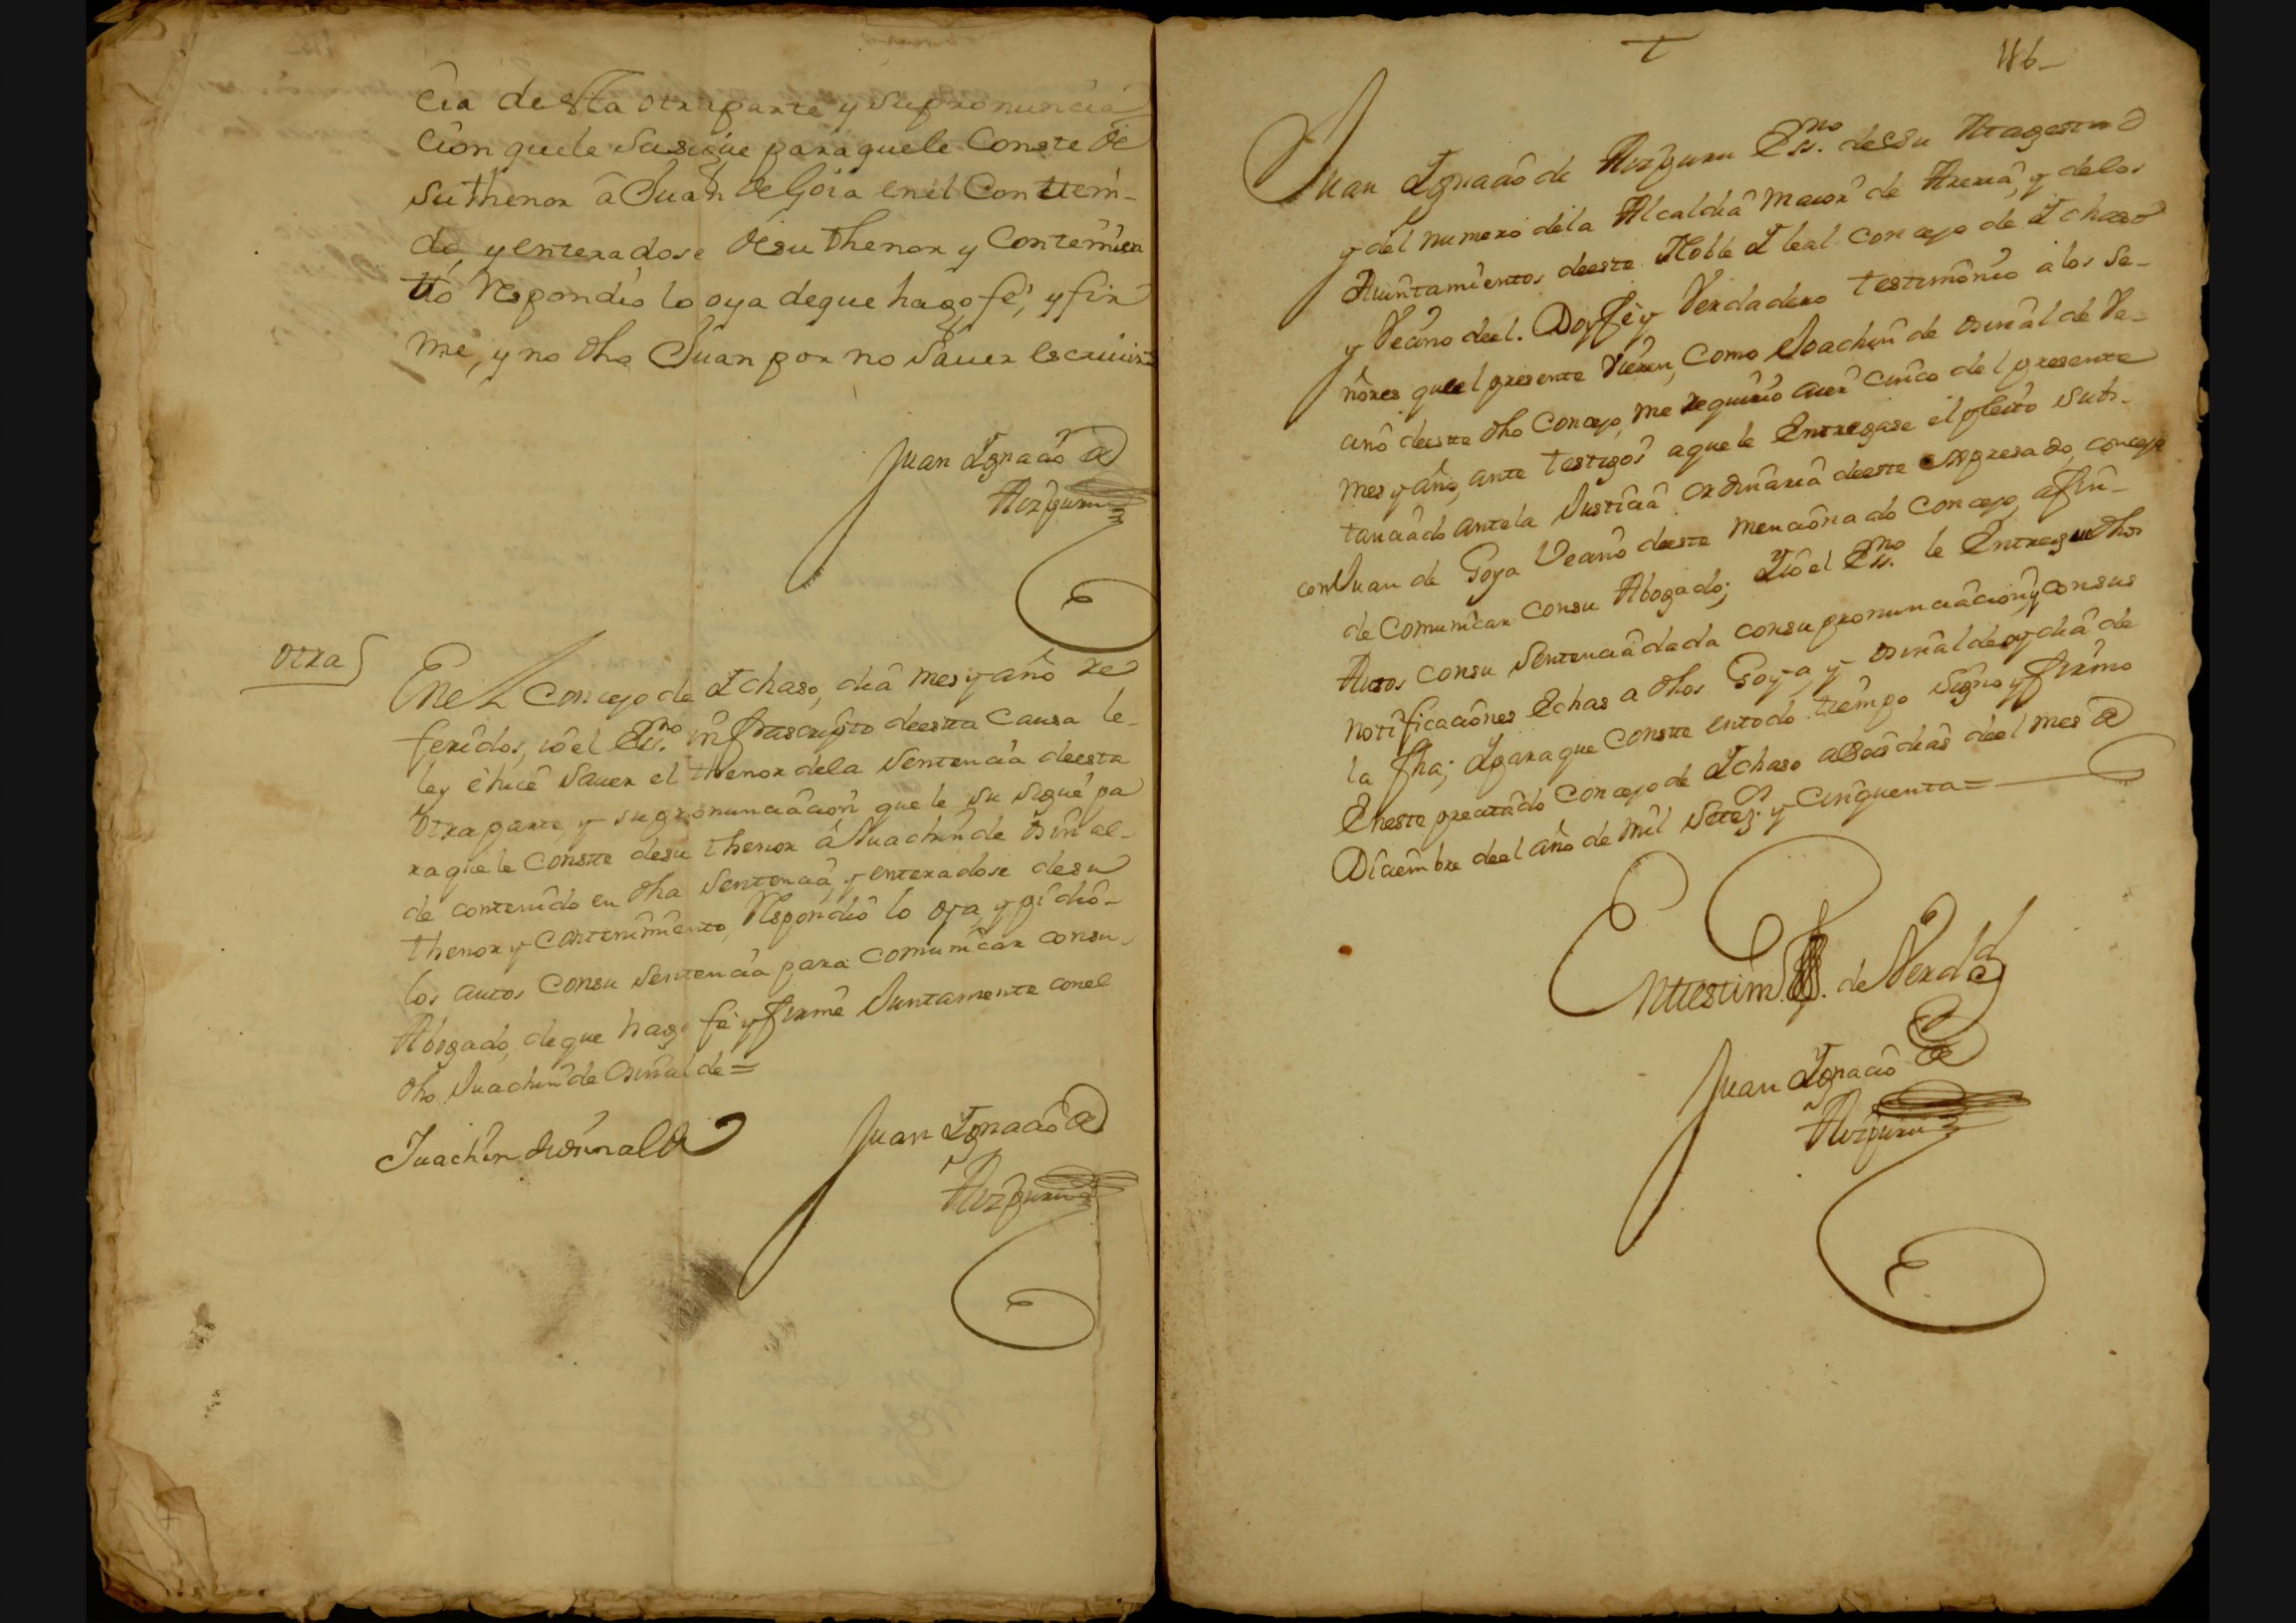 cia desta otra parte y su pronuncia
cion que le Susigue para que le Conste de
su thenor â Juan de Goia en el Conttem-
do, y enteradose de su thenor y Contenimien
tto Respondio lo oya de que hago fe, y fir
me, y no dho Juan por no Saver escriuir
Juan Ignacio de
Aizpuru
Otra
En el Concejo de Ichaso, dia mes y año re
feridos, io el Ess.no infrascripto de esta Causa le-
ley ê hice Saver el thenor de la Sentencia de esta
Otra parte, y su pronunciacion que le su sigue pa
ra que le Conste de su thenor â Juachin de Osinal-
de contenido en dha Sentencia, y enteradose de su
thenor y Contenimiento, Respondio lo oya, y pidio-
los autos Con su Sentencia para Comunicar con su
Abogado, de que hago fe y firme Juntamente con el
dho Juachin de Osinalde =
Juachin de Osinalde
Juan Ignacio de
Aizpuru
186
Juan Ignacio de Aizpuru Ess.no de Su Magestad
y del numero de la Alcaldia maior de Areria, y de los
Aiuntamientos de este Noble I leal Concejo de Ichaso
y Vecino de el. Doy fe y Verdadero testimonio a los Se-
ñores que el presente Vieren, Como Joachin de Osinalde Ve-
cino de este dho Concejo, me requirio aier cinco del presente
mes y año, ante testigos a que le Entregase el pleito subs-
tanciado ante la Justicia ordinaria de este expresado, concejo
con Juan de Goya Vecino de este mencionado Concejo, a fin-
de Comunicar con su Abogado; I io el Ess.no le Entregue dhos
Autos con su Sentencia dada con su pronunciacion, y con sus
notificaciones Echas a dhos Goya, y Osinalde oy dia de
la fha; I para que Conste en todo tiempo Signo y firmo
En este precitado Concejo de Ichaso a seis dias de el mes de
Diciembre de el año de mil Setez.s y Cinquenta =
En ttestim.o de Verdad
Juan Ignacio de
Aizpuru